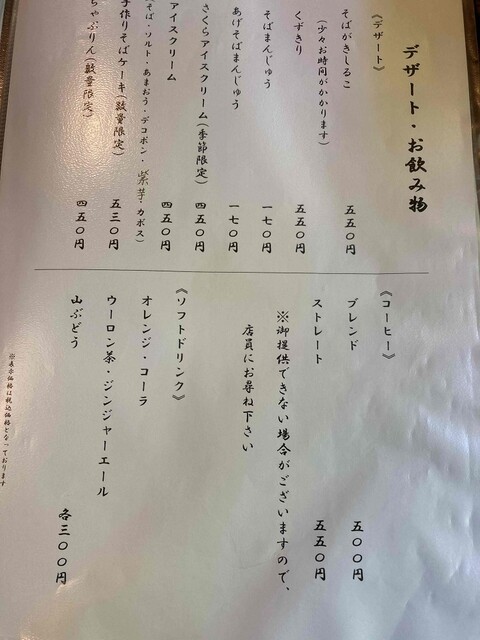 デザート・お飲み物
《デザート》
そばがきしるこ 五五〇円
(少々お時間がかかります)
くずきり 五五〇円
そばまんじゅう 一七〇円
あげそばまんじゅう 一七〇円
さくらアイスクリーム(季節限定) 四五〇円
アイスクリーム 四五〇円
そば・ソルト・あまおう・デコポン・紫芋・カボス)
手作りそばケーキ(数量限定) 五三〇円
ちゃぷりん(数量限定) 四五〇円
《コーヒー》
ブレンド 五〇〇円
ストレート 五五〇円
※御提供できない場合がございますので、
店員にお尋ね下さい
《ソフトドリンク》
オレンジ・コーラ
ウーロン茶・ジンジャーエール
山ぶどう
各三〇〇円
※表示価格は税込価格となっております